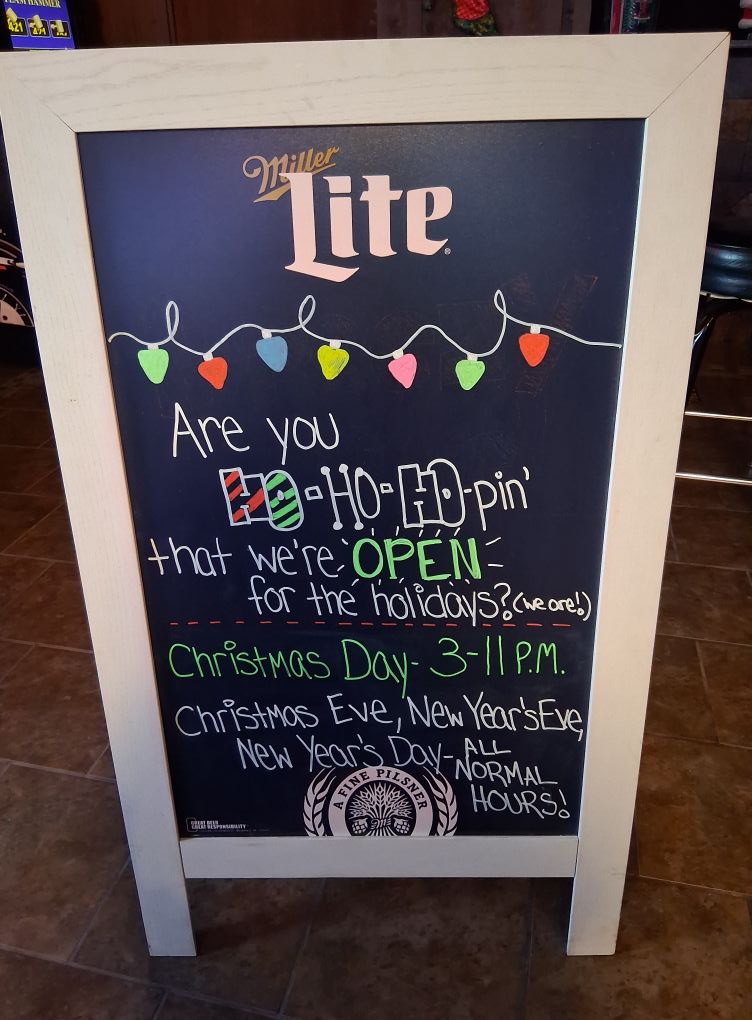 TEAM HAMMER
421
Miller
Lite
Are you
HO-HO-HO-pin'
that we're OPEN
for the holidays? (we are!)
Christmas Day - 3-11 P.M.
Christmas Eve, New Year's Eve,
New Year's Day - ALL
NORMAL
HOURS!
A FINE PILSNER
GREAT BEER
GREAT RESPONSIBILITY